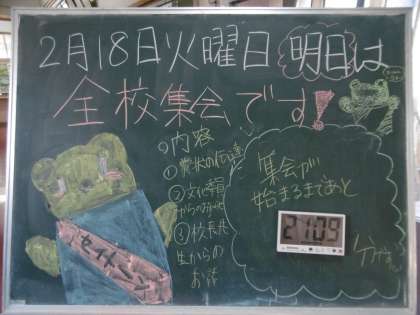 2月18日火曜日 明日は
全校集会です!
内容
①賞状の伝達
②文化委員
からのお知らせ
③校長先
生からの
お話
集会が
始まるまであと
21:09